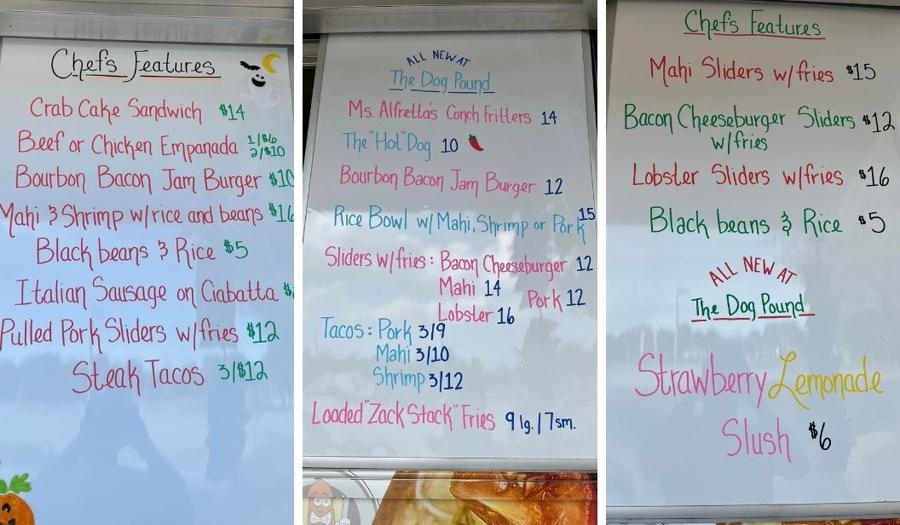 Chef's Features
Crab Cake Sandwich $14
Beef or Chicken Empanada 1/$6
2/$10
Bourbon Bacon Jam Burger $10
Mahi & Shrimp w/rice and beans $16
Black beans & Rice $5
Italian Sausage on Ciabatta $
Pulled Pork Sliders w/fries $12
Steak Tacos 3/$12
ALL NEW AT
The Dog Pound
Ms. Alfretta's Conch Fritters 14
The "Hot" Dog 10
Bourbon Bacon Jam Burger 12
Rice Bowl w/ Mahi, Shrimp or Pork 15
Sliders w/fries: Bacon Cheeseburger 12
Mahi 14 Pork 12
Lobster 16
Tacos: Pork 3/9
Mahi 3/10
Shrimp 3/12
Loaded "Zack Stack" Fries 9 lg. / 7 sm.
Chef's Features
Mahi Sliders w/fries $15
Bacon Cheeseburger Sliders $12
w/fries
Lobster Sliders w/fries $16
Black beans & Rice $5
ALL NEW AT
The Dog Pound
Strawberry Lemonade
Slush $6